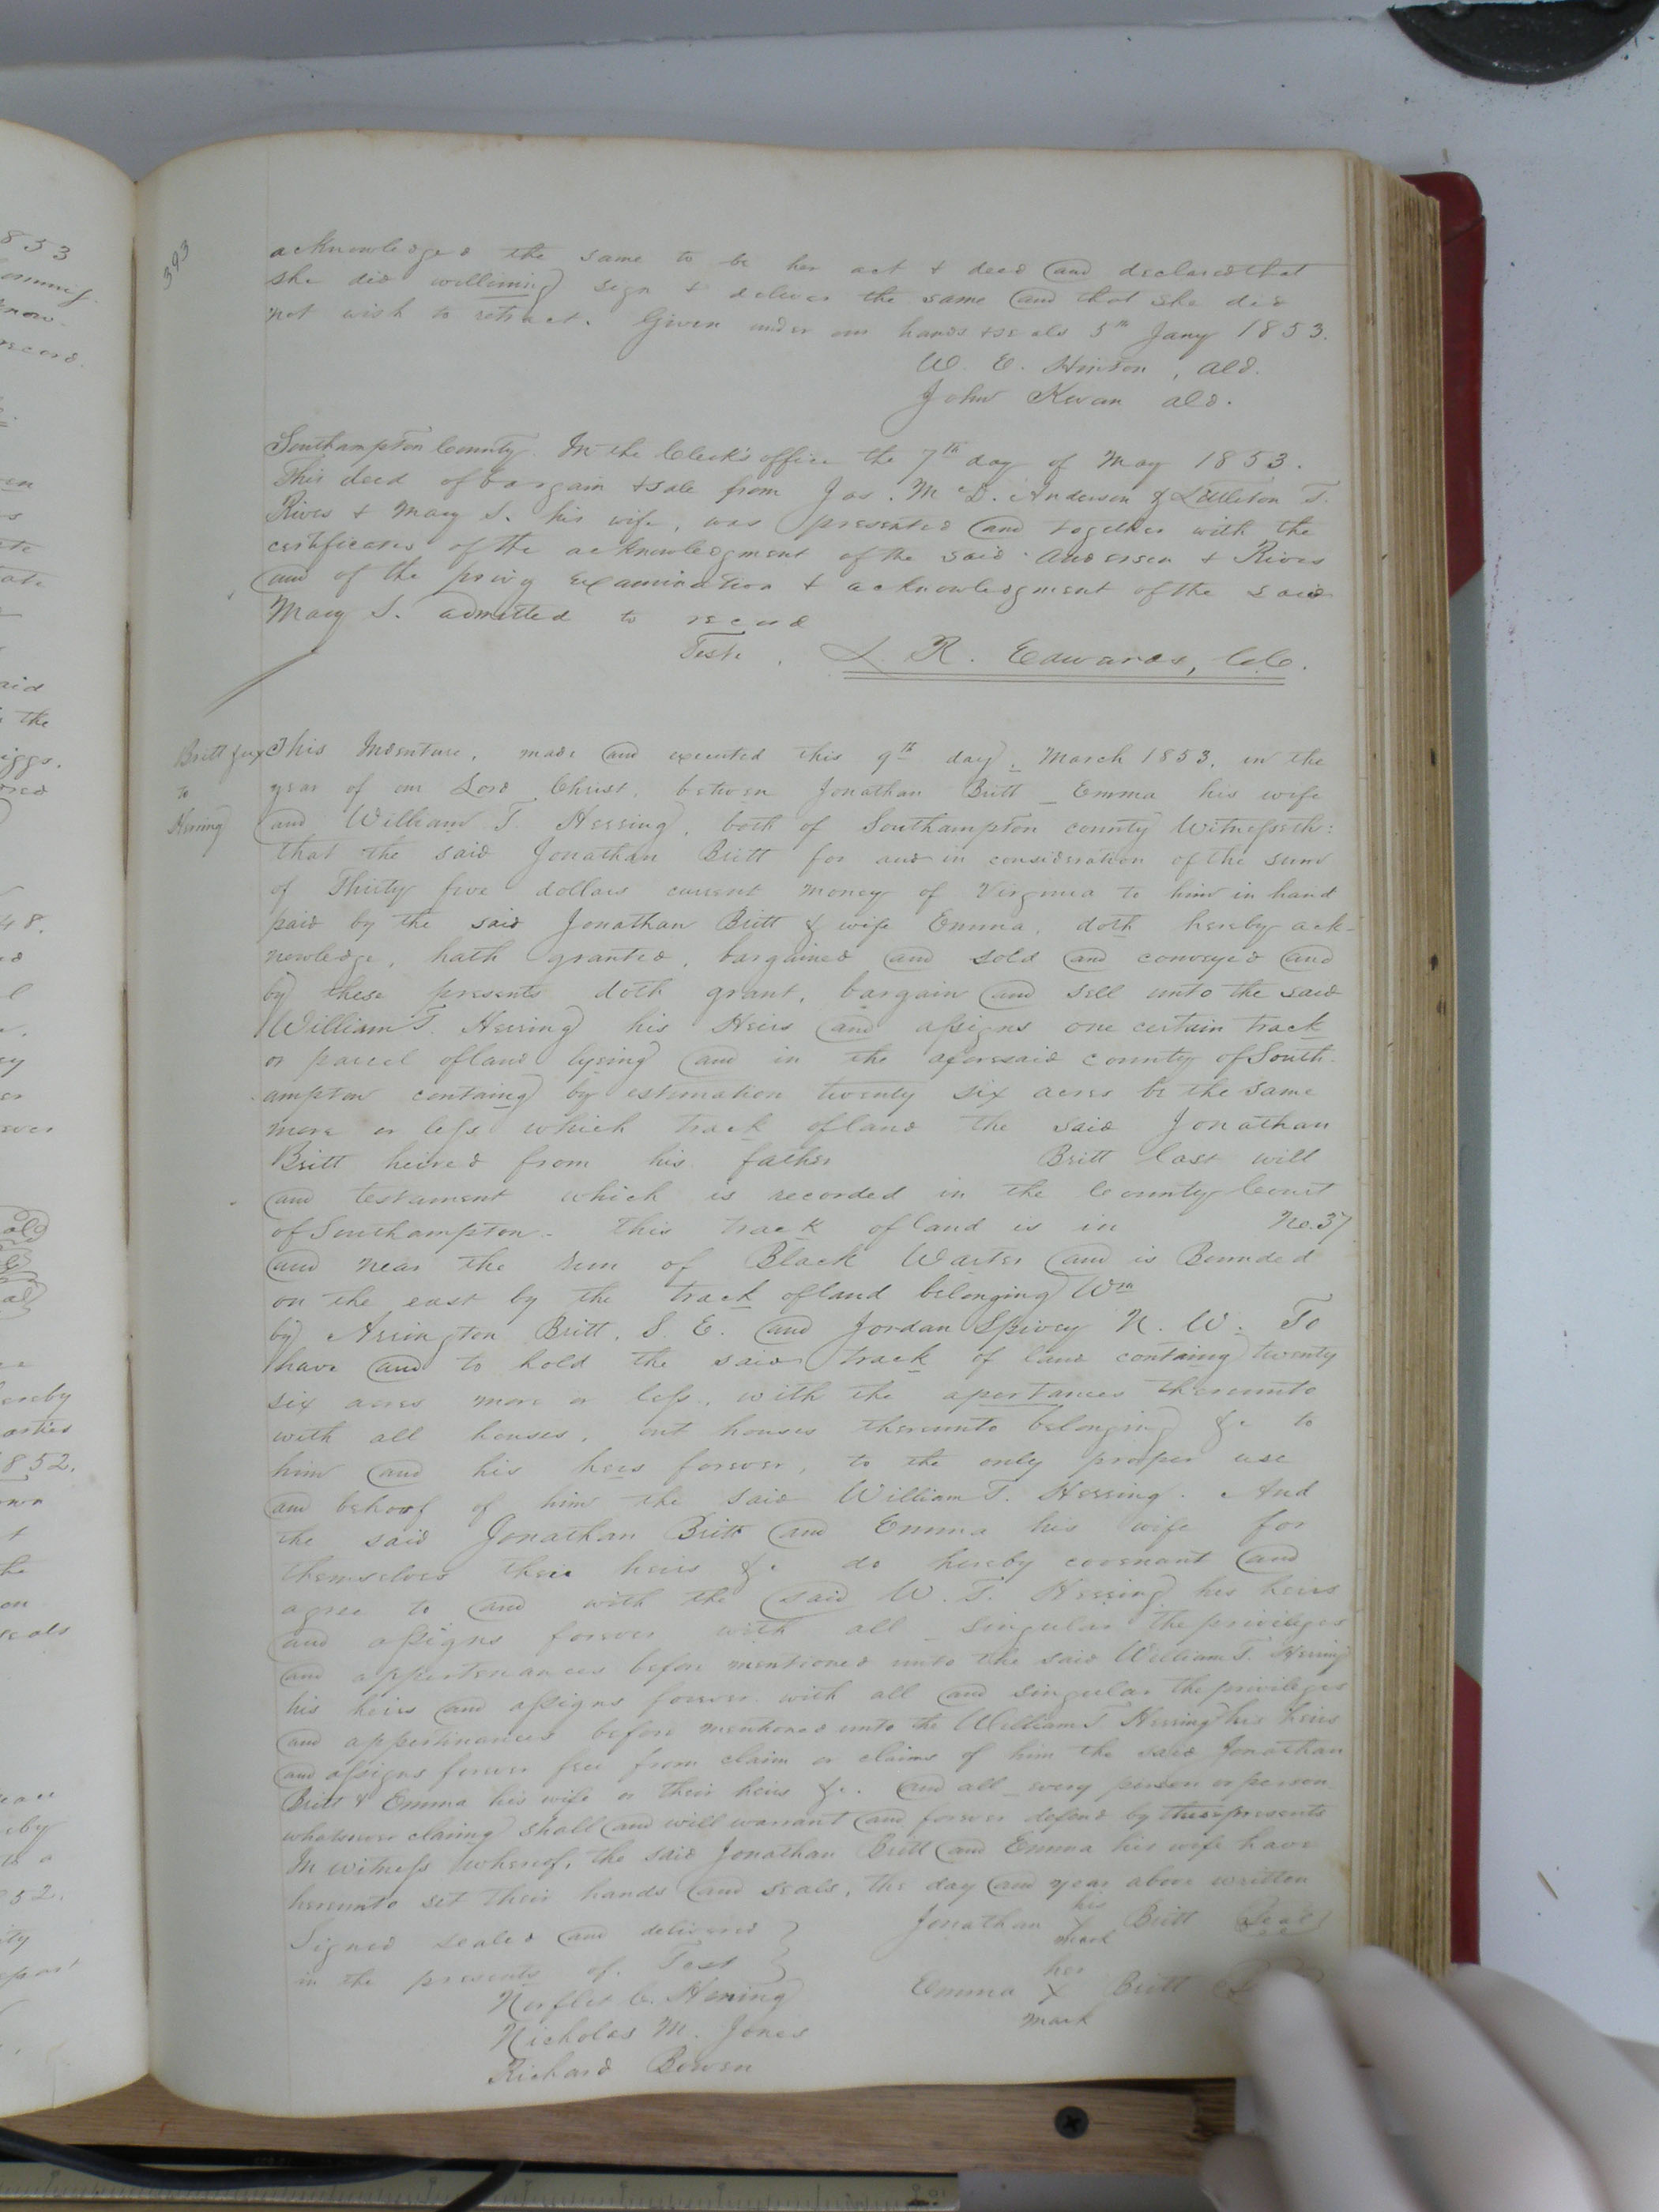 393
acknowledged the same to be her act & deed and declared that
she did willining sign & deliver the same and that she did
not wish to retract. Given under our hands & seals 5th Jany 1853.
W. E. Hinton, ald.
John Kwan ald.
Southampton County. In the Clerk's office the 7th day of May 1853.
This deed of bargain & sale from Jas. M D. Anderson & Littleton T.
Rives & Mary S. his wife, was presented and together with the
certificates of the acknowledgment of the said Anderson & Rives
and of the privy examination & acknowledgment of the said
Mary S. admitted to record
Teste. L. R. Edwards, C.C.
Britt & ux
to
Herring
This Indenture, made and executed this 9th day, March 1853, in the
year of our Lord Christ, between Jonathan Britt _ Emma his wife
and William T. Herring, both of Southampton county Witnesseth:
that the said Jonathan Britt for and in consideration of the sum
of Thirty five dollars current money of Virginia to him in hand
paid by the said Jonathan Britt & wife Emma, doth hereby ack-
nowledge, hath granted, bargained and sold and conveyed and
by these presents doth grant, bargain and sell unto the said
William T. Herring his Heirs and assigns one certain track
or parcel of land lysing and in the aforesaid county of South-
ampton containg by estimation twenty six acres be the same
more or less which track of land the said Jonathan
Britt heired from his father Britt last will
and testament which is recorded in the County Court
of Southampton - This track of land is in No. 37
and near the run of Black Warter and is Bounded
on the east by the track of land belonging Wm
by Arrington Britt, S. E. and Jordan Spivey N. W. To
have and to hold the said track of land containg twenty
six acres more or less, with the apertances thereunto
with all houses, out houses thereunto belonging &c to
him and his hers forever, to the only proper use
and behoof of him the said William T. Herring. And
the said Jonathan Britt and Emma his wife for
themselves their heirs &c do hereby covenant and
agree to and with the said W. T. Herring his heirs
and assigns forever with all _ singular the privileges
and appertenances before mentioned unto the said William T. Herring
his heirs and assigns forever with all and singular the privileges
and appertinances before mentioned unto the William T. Herring his heirs
and assigns forever free from claim or claims of him the said Jonathan
Britt & Emma his wife or their heirs &c. and all _ every person or person
whatsoever claimg shall and will warrant and forever defend by these presents
In witness whereof, the said Jonathan Britt and Emma his wife have
hereunto set their hands and seals, the day and year above written
Signed sealed and delivered
in the presents of. Test
Jonathan his X mark Britt Seal
Emma her X mark Britt
Norflet C. Herring
Nicholas M. Jones
Richard Bowen